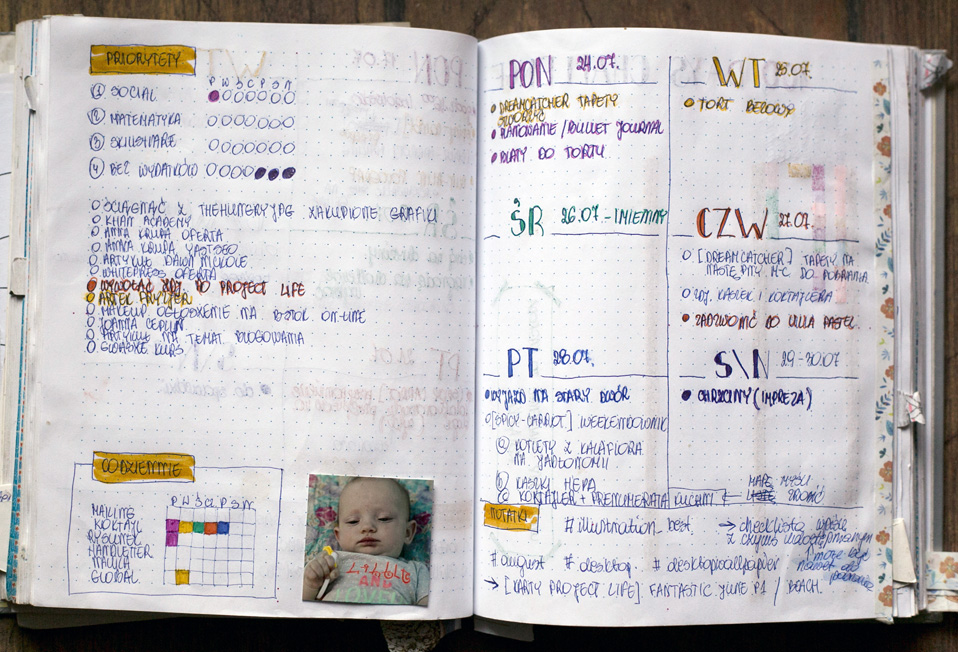 PRIORYTETY
P W Ś C P S N
1 SOCIAL
2 MATEMATYKA
3 SKILLSHARE
4 BEZ WYDATKÓW
ŚCIĄGNĄĆ Z THEHUNGRYJPG ZAKUPIONE GRAFIKI
KHAN ACADEMY
ANNA KRUPA OFERTA
ANNA KRUPA
ARTYKUŁ DAWN NICOLE
WHITEPRESS OFERTA
WYWOŁAĆ ZDJ. DO PROJECT LIFE
MAKEUP OGŁOSZENIE NA BOTOK ON-LINE
JOANNA
ARTYKUŁ NA TEMAT BLOGOWANIA
KURS
CODZIENNIE
P W Ś C P S N
MAILING
KOKTAJL
RYSUNEK
HANDLETTER
GLOBAL
PON 24.07.
DREAMCATCHER TAPETY
STWORZYĆ
PLANOWANIE / BULLET JOURNAL
BLATY DO TORTU
WT 25.07.
TORT BEZOWY
ŚR 26.07. - IMIENINY
CZW 27.07.
[DREAMCATCHER] TAPETY NA
NASTĘPNY M-C DO POBRANIA
ZDJ. KASZEK I KOKTAJLERA
ZADZWONIĆ DO ULLA PASTEL
PT 28.07.
WYJAZD NA STARY DWÓR
[SPICY-CARROT] WEEKENDOWNIK
a KOTLETY Z KALAFIORA
NA JADŁONOMII
b KASZKI HEPA
c KOKTAJLER + PRENUMERATA KUCHNI
S\N 29-30.07
CHRZCINY (IMPREZA)
MAPĘ MYŚLI
ZROBIĆ
NOTATKI
# illustration best
→ checklista wpisów
# august # desktop # desktopwallpaper
→ [PARTY PROJECT LIFE] FANTASTIC JUNE P1 / BEACH